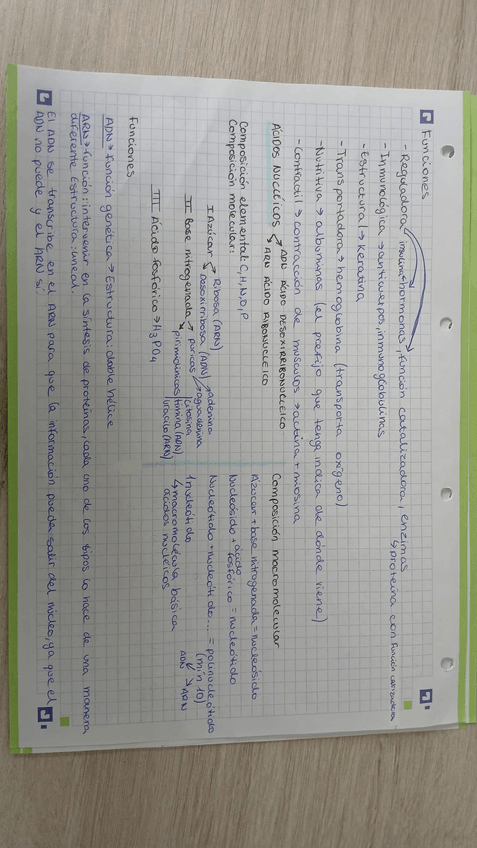 Funciones
- Reguladora insulina → hormonas, función catalizadora, enzimas
↳ proteína con función catalizadora
- Inmunológica → anticuerpo, inmunoglobulinas
- Estructural → Keratina
- Transportadora → hemoglobina (transporta oxígeno)
- Nutritiva → albuminas (el prefijo que tenga indica de dónde viene)
- Contráctil → contracción de músculos → actina + miosina
ÁCIDOS NUCLÉICOS → ADN ÁCIDO DESOXIRRIBONUCLEICO
→ ARN ÁCIDO RIBONUCLEICO
Composición elemental: C, H, N, O, P
Composición molecular:
I Azúcar → Ribosa (ARN)
→ Desoxirribosa (ADN)
II Base nitrogenada → púricas → adenina
→ guanina
→ pirimidínicas citosina
timina (ADN)
uracilo (ARN)
III Ácido fosfórico → H3PO4
Composición macromolecular
Azúcar + base nitrogenada = nucleósido
Nucleósido + ácido fosfórico = nucleótido
Nucleótido + nucleótido... = polinucleótido
(mín 10)
1 nucleótido
↳ macromolécula básica
ácidos nucleicos
ADN ARN
Funciones
ADN → función genética → Estructura: doble hélice
ARN → función: intervenir en la síntesis de proteínas, cada uno de los tipos lo hace de una manera
diferente. Estructura: lineal.
El ADN se transcribe en el ARN para que la información pueda salir del núcleo, ya que el
ADN no puede y el ARN sí.